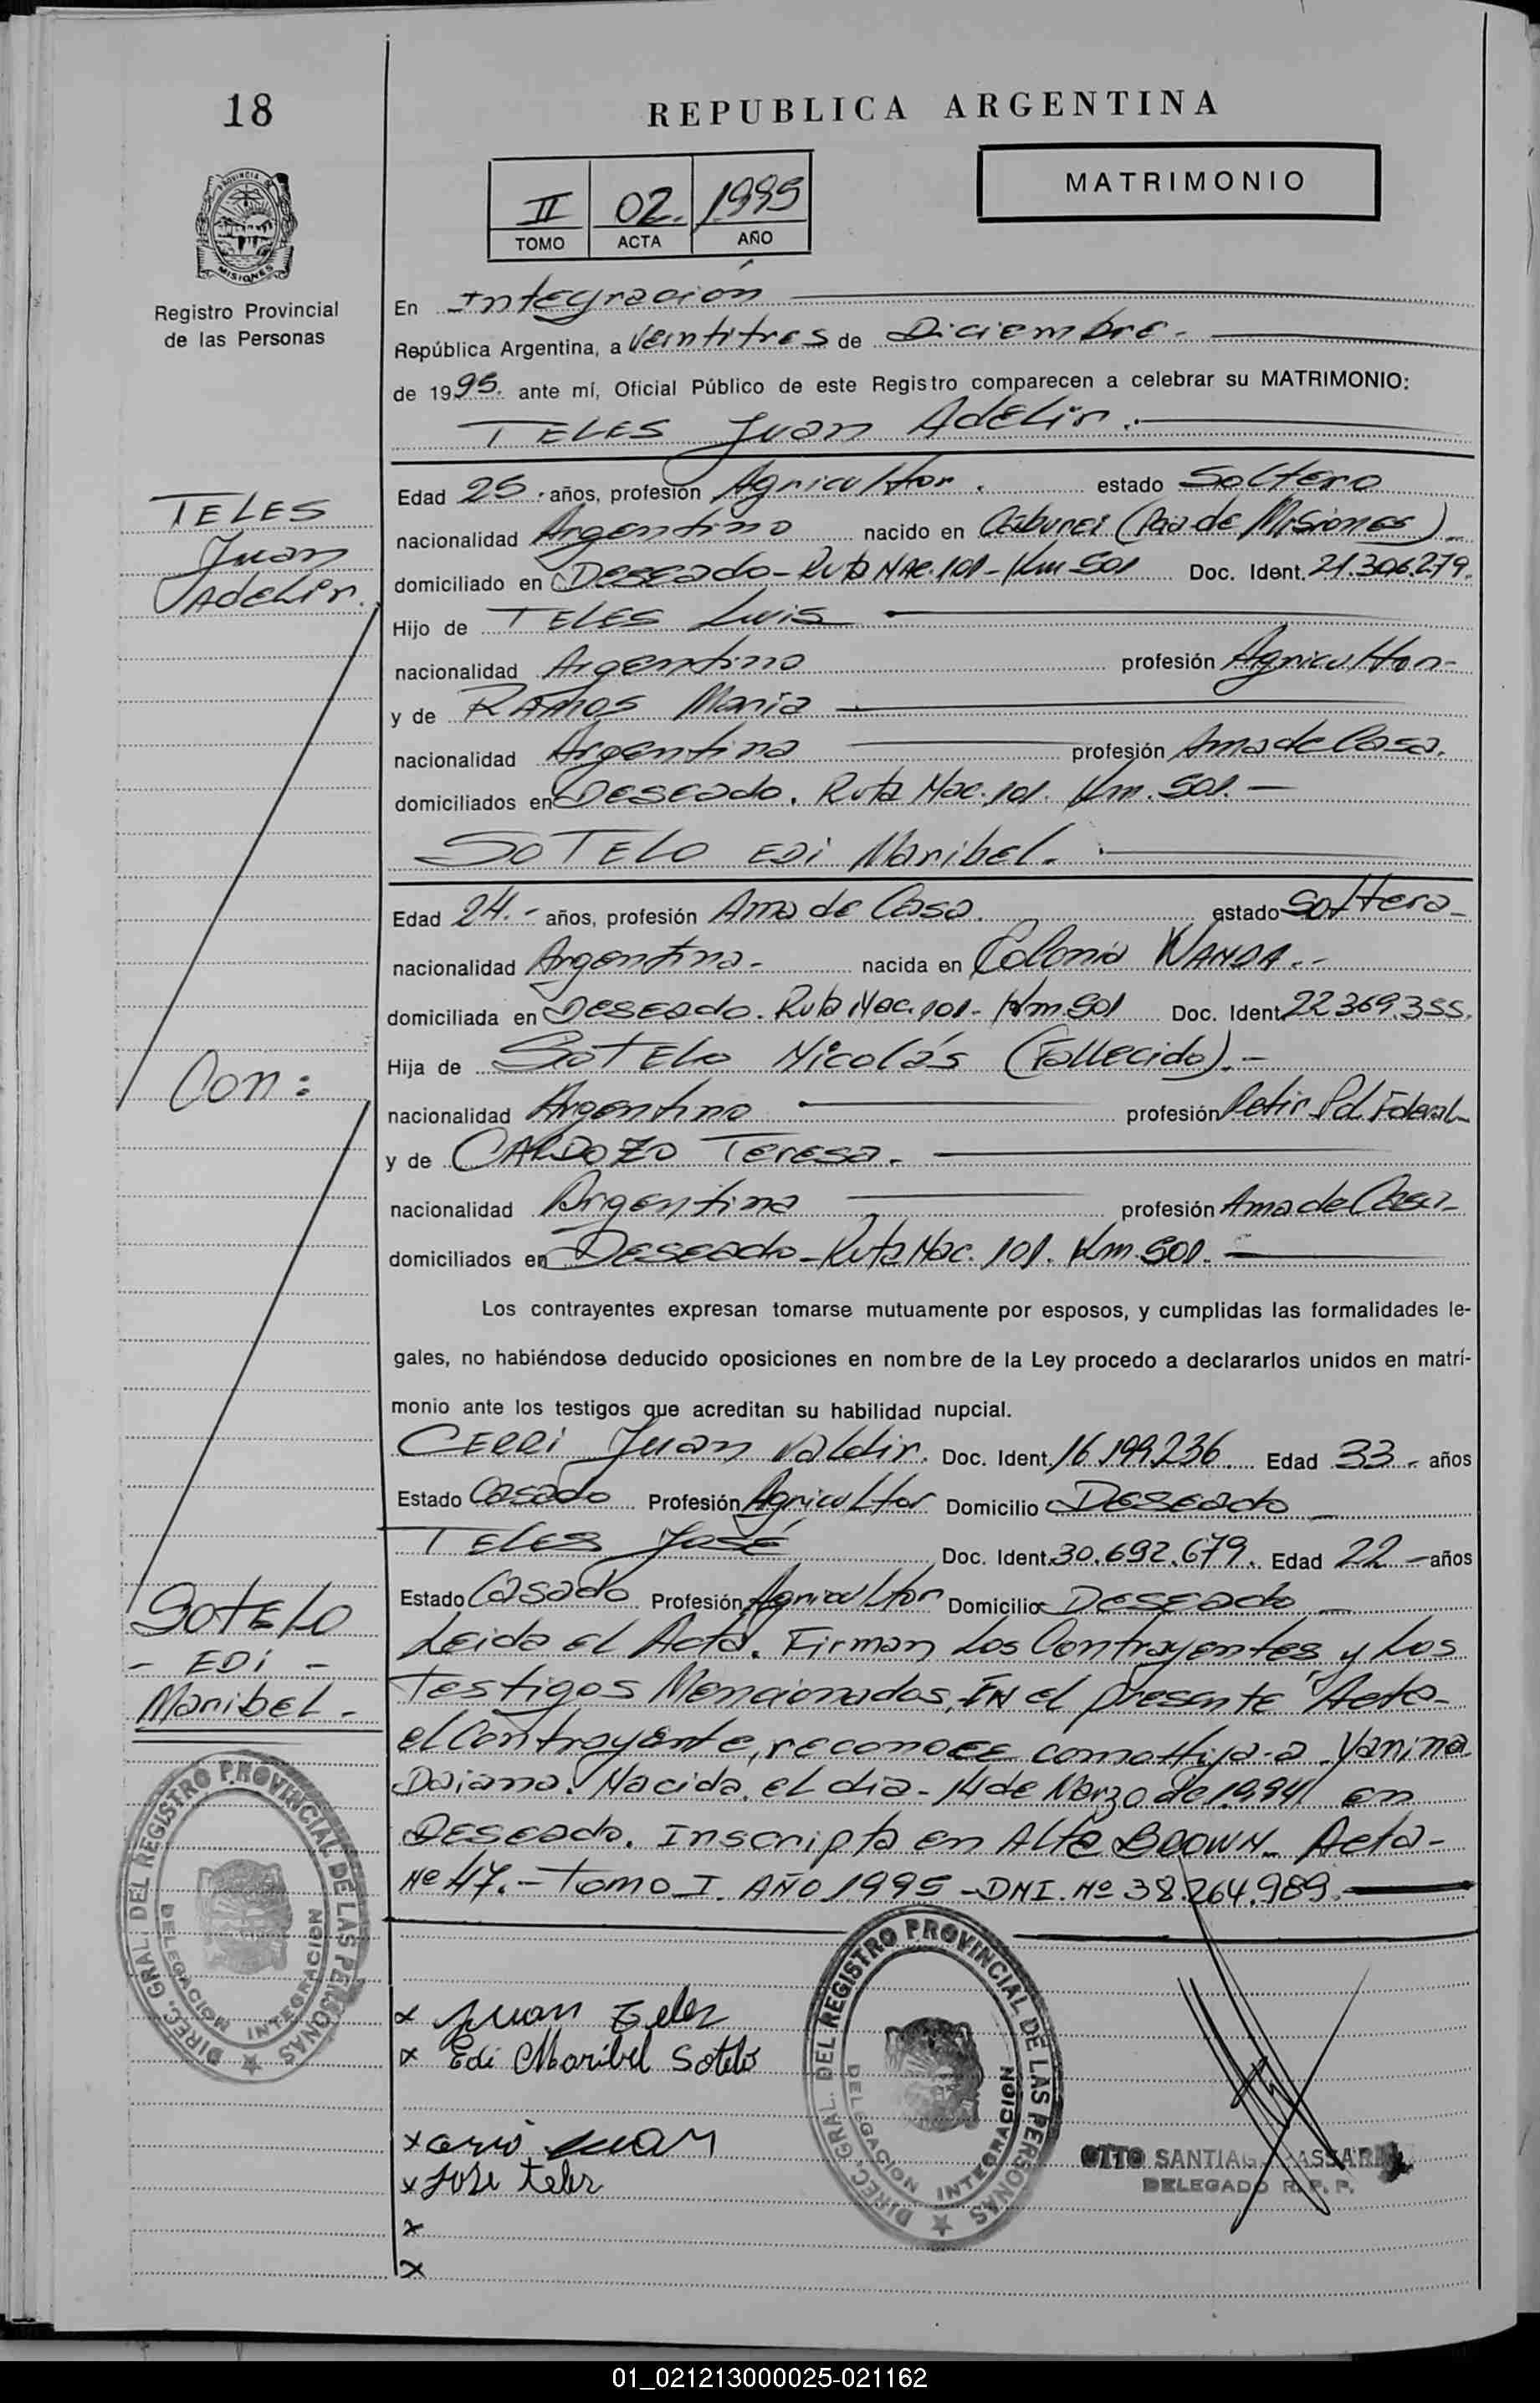 18
REPUBLICA ARGENTINA
MATRIMONIO
II 02. 1995
TOMO ACTA AÑO
PROVINCIA DE
MISIONES
Registro Provincial
de las Personas
En Integración
República Argentina, a Veintitres de Diciembre.-
de 1995. ante mí, Oficial Público de este Registro comparecen a celebrar su MATRIMONIO:
TELES Juan Adelir.
Edad 25.- años, profesión Agricultor. estado Soltero
nacionalidad Argentino nacido en Caburei (Pcia de Misiones)
domiciliado en Deseado - Ruta Nac. 101 - Km 501 Doc. Ident. 21.306.279.
Hijo de TELES Luis
nacionalidad Argentino profesión Agricultor-
y de RAMOS Maria
nacionalidad Argentina profesión Ama de Casa.
domiciliados en Deseado. Ruta Nac. 101. Km. 501.-
SOTELO EDi Maribel.
Edad 24.- años, profesión Ama de Casa. estado Soltera-
nacionalidad Argentina.- nacida en Colonia WANDA.-
domiciliada en Deseado. Ruta Nac. 101- Km. 501 Doc. Ident. 22.369.355.
Hija de SOTELO Nicolás (Fallecido).-
nacionalidad Argentino profesión Retir. Pol. Federal-
y de CARDOZO Teresa.-
nacionalidad Argentina profesión Ama de Casa.-
domiciliados en Deseado - Ruta Nac. 101. Km. 501.-
Los contrayentes expresan tomarse mutuamente por esposos, y cumplidas las formalidades le-
gales, no habiéndose deducido oposiciones en nombre de la Ley procedo a declararlos unidos en matri-
monio ante los testigos que acreditan su habilidad nupcial.
CERRi Juan Valdir. Doc. Ident. 16.199.236. Edad 33.- años
Estado Casado Profesión Agricultor Domicilio Deseado
TELES José Doc. Ident. 30.692.679. Edad 22 - años
Estado Casado Profesión Agricultor Domicilio Deseado
Leida el Acta. Firman Los Contrayentes y Los
Testigos Mencionados. EN el presente Acto-
el Contrayente, reconoce como Hija - a Yanina
Daiana. Nacida. el dia - 14 de Marzo de 1994 en
Deseado. Inscripta en Alte BROWN. Acta-
Nº 47.- Tomo I. AÑO 1995 - DNI. Nº 38.264.989.
TELES
Juan
Adelir.
Con:
SOTELO
- EDi -
Maribel.-
DIREC. GRAL. DEL REGISTRO PROVINCIAL DE LAS PERSONAS
DELEGACION INTEGRACION
x Juan Teles
x Edi Maribel Sotelo
x Juan
x Jose teles
x
x
DIREC. GRAL. DEL REGISTRO PROVINCIAL DE LAS PERSONAS
DELEGACION INTEGRACION
OTTO
DELEGADO R. P. P.
01_021213000025-021162